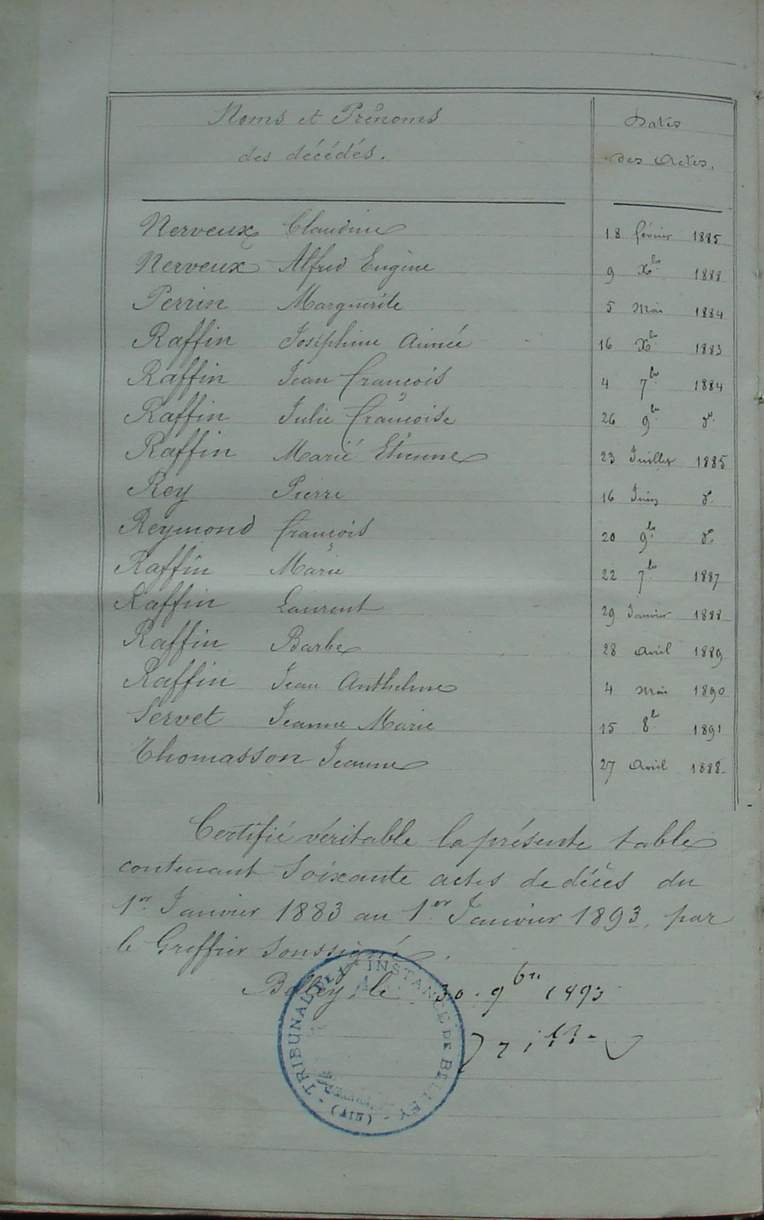 Noms et Prénoms
des décédés.
Dates
des Actes.
Nerveux Claudine 18 février 1885
Nerveux Alfred Eugène 9 Xbre 1888
Perrin Marguerite 5 Mai 1884
Raffin Joséphine Aimée 16 Xbre 1883
Raffin Jean François 4 7bre 1884
Raffin Julie Françoise 26 9bre do
Raffin Marie Etienne 23 Juillet 1885
Rey Pierre 16 Juin do
Reymond François 20 9bre do
Raffin Marie 22 7bre 1887
Raffin Laurent 29 Janvier 1888
Raffin Barbe 28 Avril 1889
Raffin Jean Anthelme 4 Mai 1890
Servet Jeanne Marie 15 8b 1891
Thomasson Jeanne 27 Avril 1888
Certifié véritable la présente table
contenant Soixante actes de décès du
1er Janvier 1883 au 1er Janvier 1893, par
le Greffier Soussigné.
Belley, le 30. 9bre 1893
TRIBUNAL DE 1ère INSTANCE DE BELLEY
(AIN)